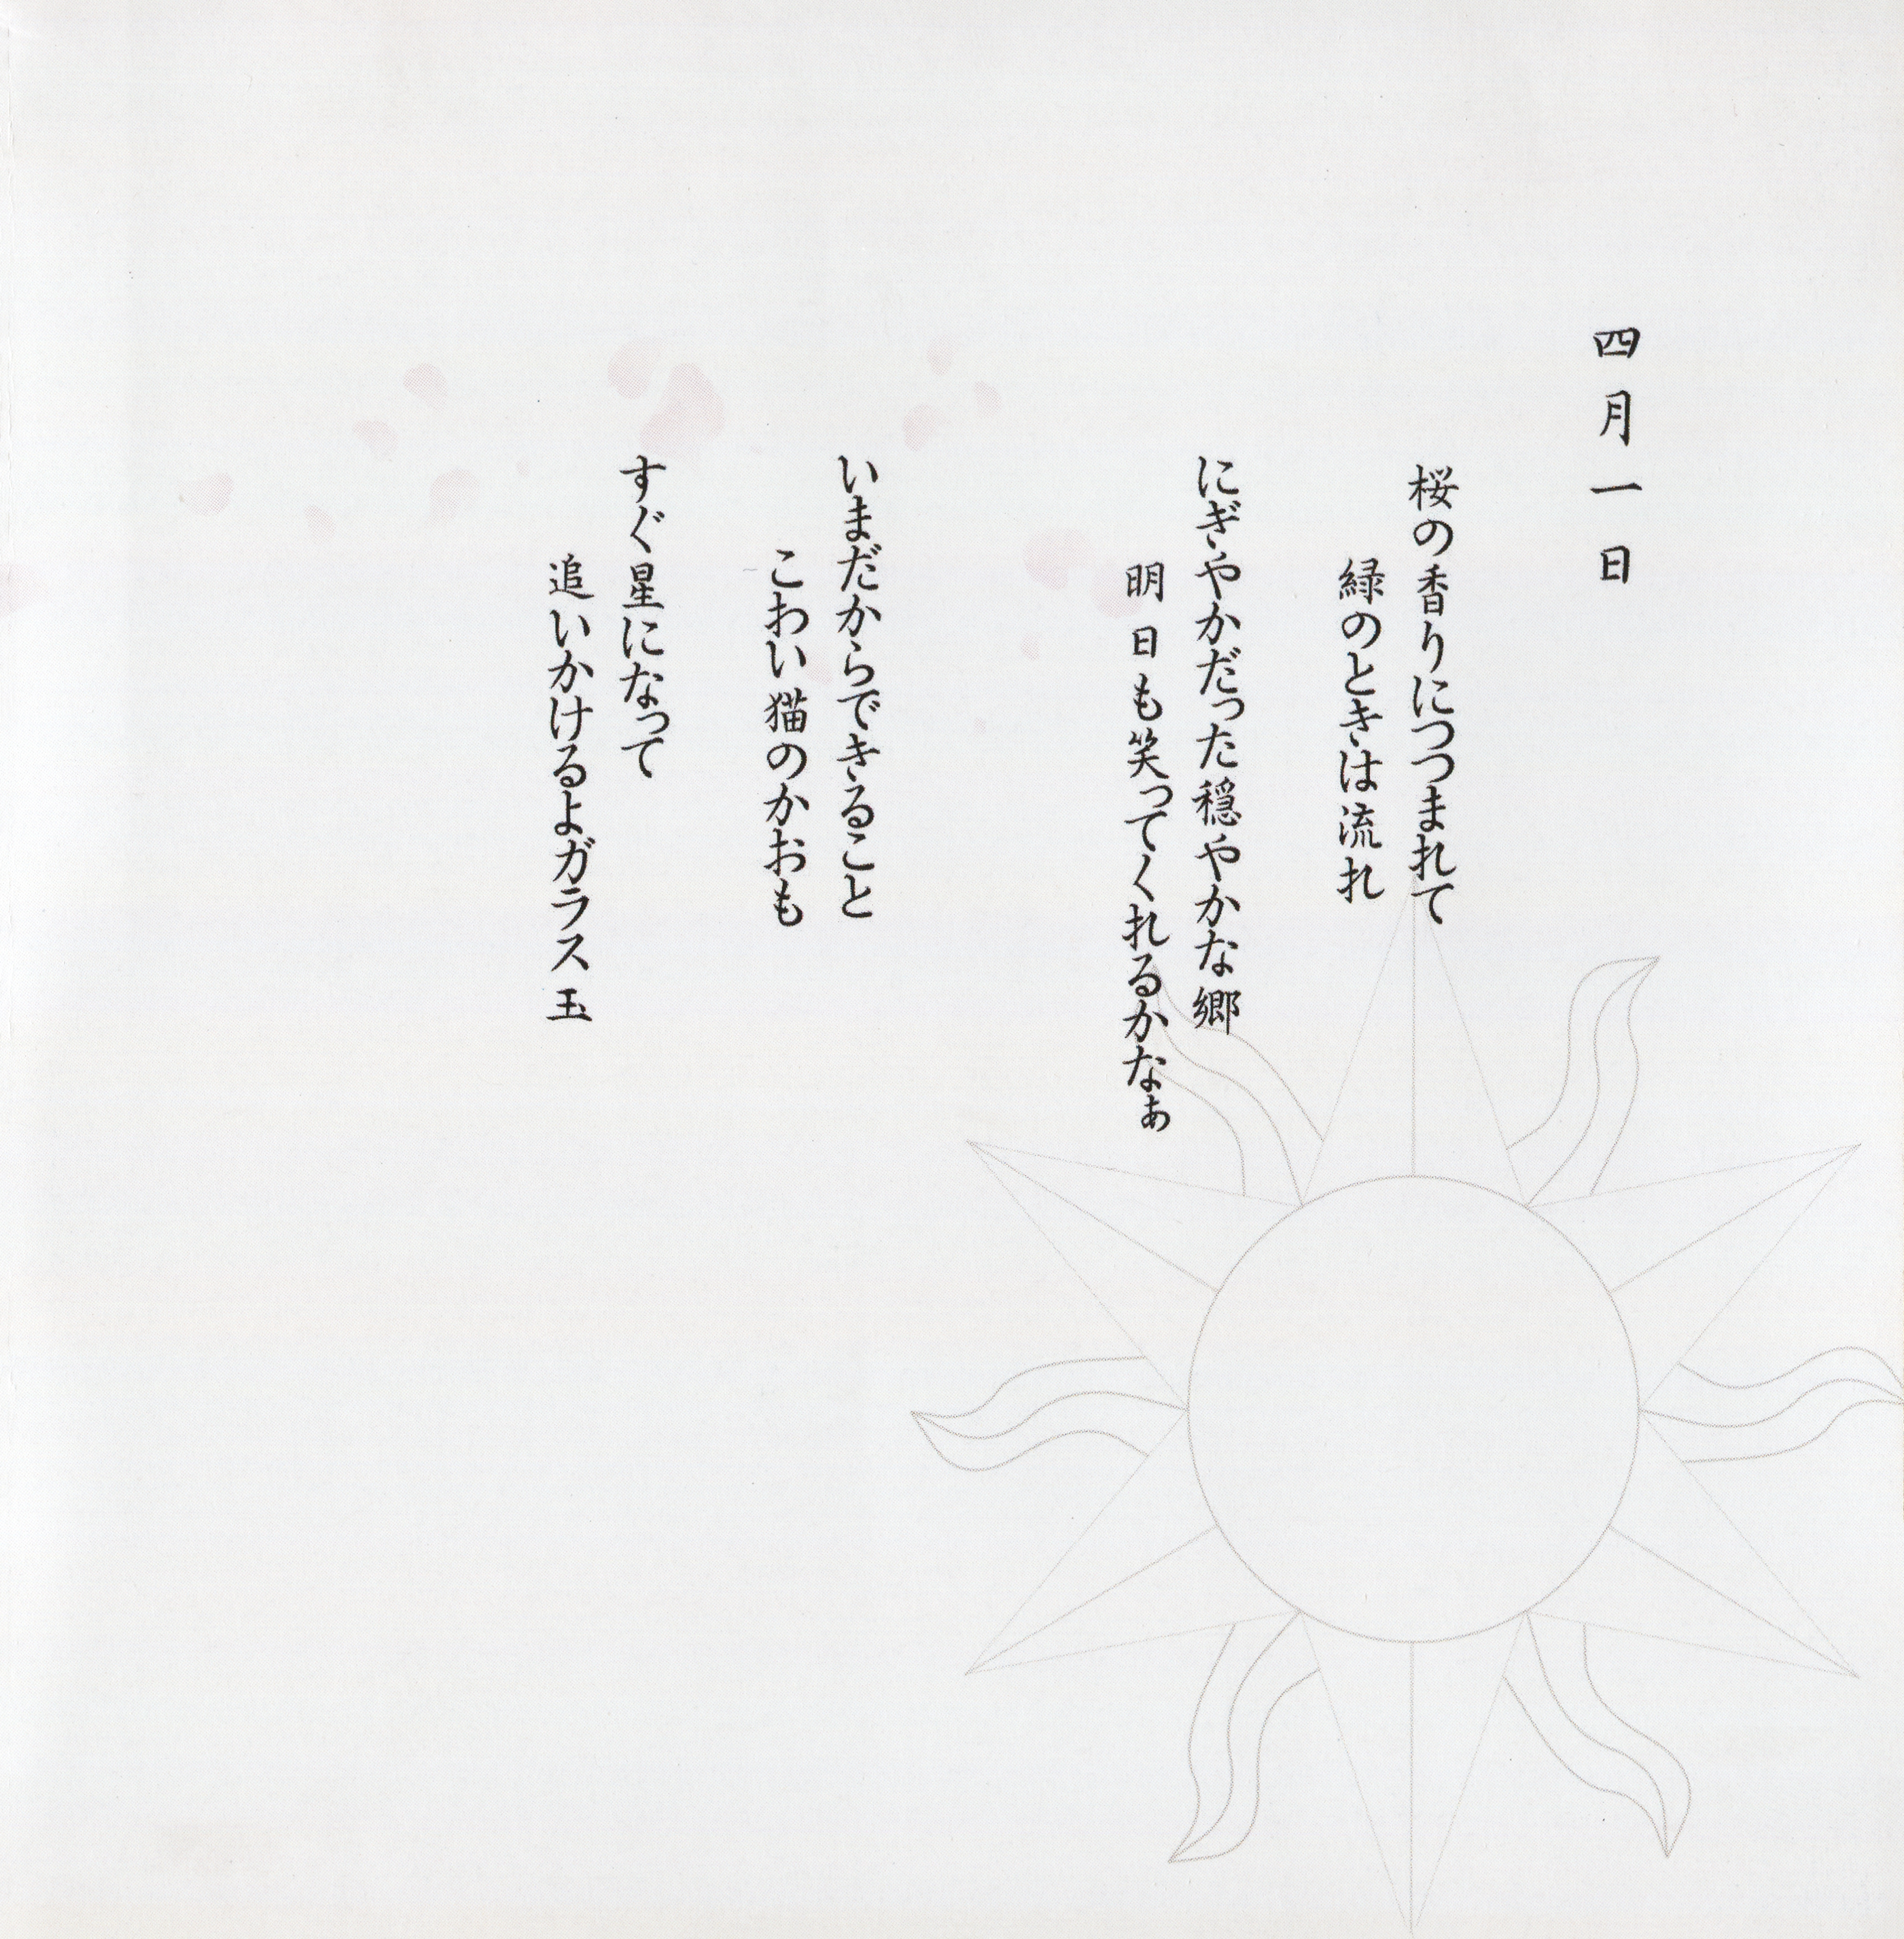 四月一日
桜の香りにつつまれて
緑のときは流れ
にぎやかだった穏やかな郷
明日も笑ってくれるかなぁ
いまだからできること
こわい猫のかおも
すぐ星になって
追いかけるよガラス玉